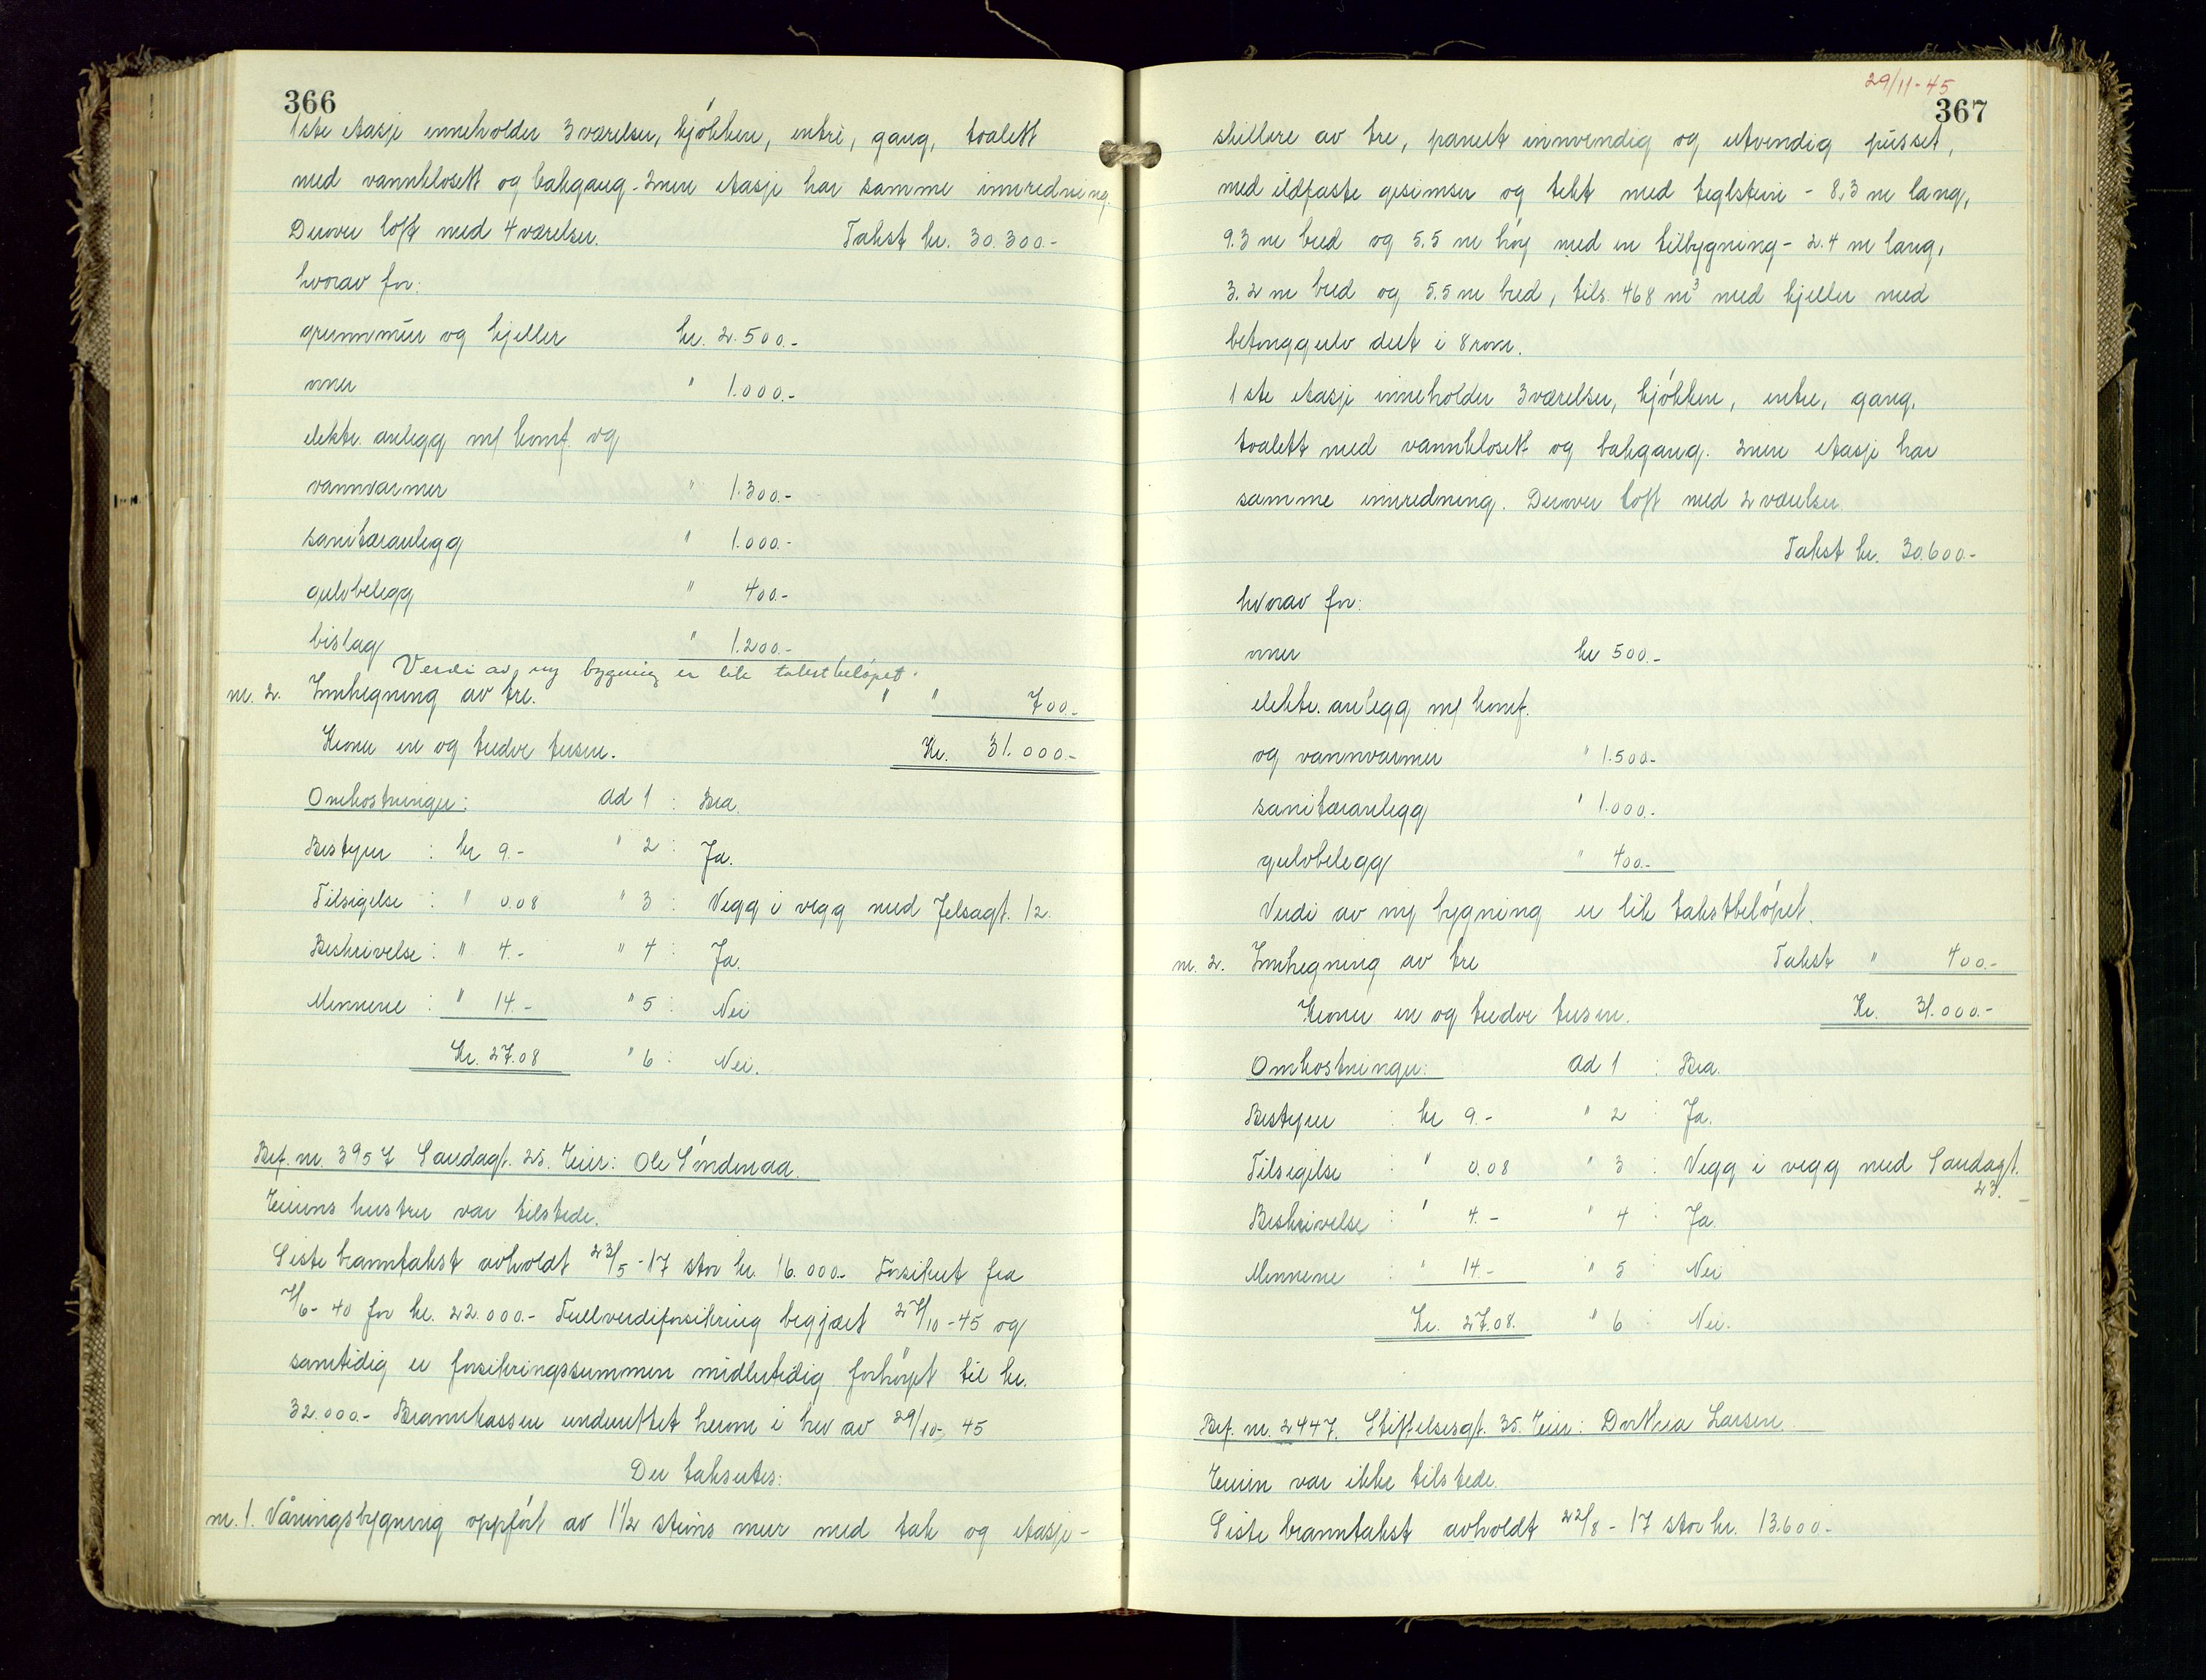 366
1ste etasje inneholder 3 værelser, kjøkken, entrè, gang, toalett
med vannklosett og bakgang. 2nen etasje har samme innredning.
Derover loft med 4 værelser. Takst kr. 30.300.-
hvorav for:
grunnmur og kjeller kr. 2.500.-
ovner " 1.000.-
elektr. anlegg m/ komf. og
vannvarmer " 1.300.-
sanitæranlegg " 1.000.-
gulvbelegg " 400.-
bislag " 1.200.-
Verdi av ny bygning er lik takstbeløpet.
nr. 2. Innhegning av tre. " " 700.-
Kroner en og tredve tusen. Kr. 31.000.-
Omkostninger: Ad 1 : Bra.
Bestyrer : kr 9.- " 2 : Ja.
Tilsigelse : " 0.08 " 3 : Vegg i vegg med Jelsagt. 12.
Beskrivelse : " 4.- " 4 : Ja.
Mennene : " 14.- " 5 : Nei
Kr. 27.08 " 6 : Nei.
Bef. nr. 3957 Saudagt. 25. Eier: Ole Sındenaa.
Eierens hustru var tilstede.
Siste branntakst avholdt 23/5 - 17 stor kr. 16.000.- Forsikret fra
7/6 - 40 for kr. 22.000.- Fullverdiforsikring begjært 27/10 - 45 og
samtidig er forsikringssummen midlertidig forhøyet til kr.
32.000.- Brannkassen underrettet herom i brev av 29/10 - 45
Der takseres:
nr. 1. Våningsbygning oppført av 1 1/2 steins mur med tak og etasje-
29/11-45
367
skillere av tre, panelt innvendig og utvendig pusset,
med ildfaste gesimser og tekt med teglstein - 8,3 m lang,
9.3 m bred og 5.5 m høy med en tilbygning - 2.4 m lang,
3.2 m bred og 5.5 m bred, tils. 468 m³ med kjeller med
betonggulv delt i 8 rom.
1 ste etasje inneholder 3 værelser, kjøkken, entre, gang,
toalett med vannklosett og bakgang. 2nen etasje har
samme innredning. Derover loft med 2 værelser.
Takst kr. 30.600.-
hvorav for:
ovner kr 500.-
elektr. anlegg m/ komf.
og vannvarmer " 1.500.-
sanitæranlegg " 1.000.-
gulvbelegg " 400.-
Verdi av ny bygning er lik takstbeløpet.
nr. 2. Innhegning av tre Takst " 400.-
Kroner en og tredve tusen. Kr. 31.000.-
Omkostninger: Ad 1 : Bra.
Bestyrer : kr 9.- " 2 : Ja.
Tilsigelse : " 0.08 " 3 : Vegg i vegg med Saudagt.
23.
Beskrivelse : " 4.- " 4 : Ja.
Mennene : " 14.- " 5 : Nei
Kr. 27.08. " 6 : Nei.
Bef. nr. 2447. Stiftelsesgt. 35. Eier: Dorthea Larsen.
Eieren var ikke tilstede.
Siste branntakst avholdt 22/8 - 17 stor kr. 13.600.-